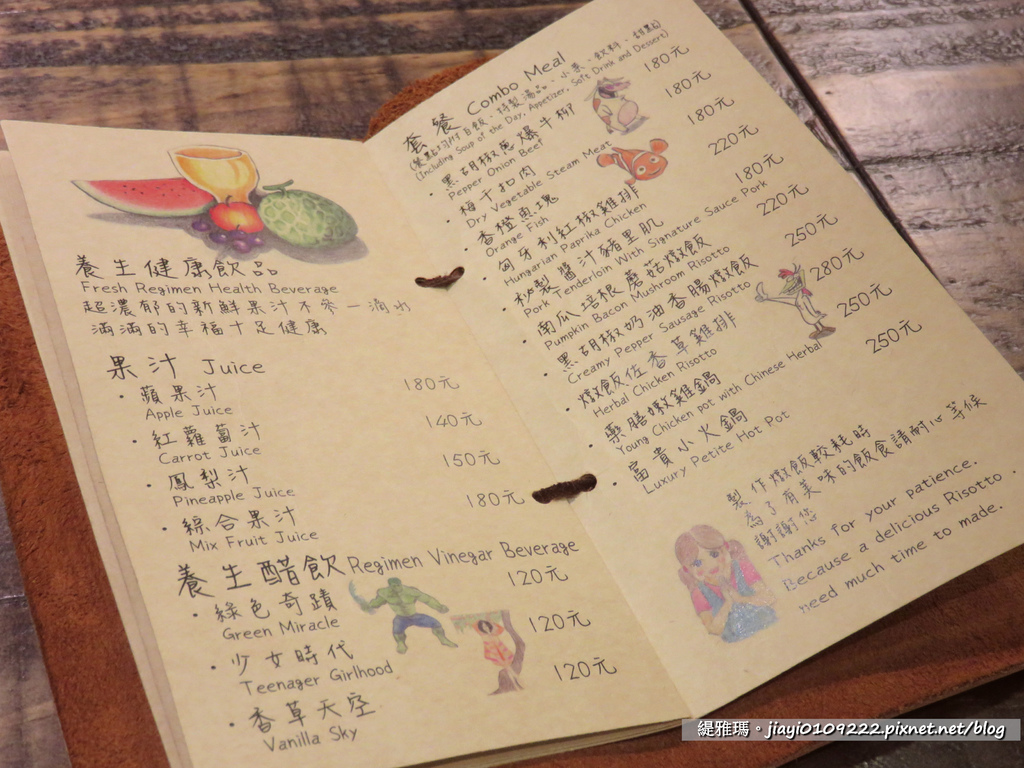 養生健康飲品
Fresh Regimen Health Beverage
超濃郁的新鮮果汁不孿一滴水
滿滿的幸福十足健康
果汁 Juice
・蘋果汁 180元
Apple Juice
・紅蘿蔔汁 140元
Carrot Juice
・鳳梨汁 150元
Pineapple Juice
・綜合果汁 180元
Mix Fruit Juice
養生醋飲 Regimen Vinegar Beverage
・綠色奇蹟 120元
Green Miracle
・少女時代 120元
Teenager Girlhood
・香草天空 120元
Vanilla Sky
套餐 Combo Meal
(餐點均附白飯、特製湯品、小菜、飲料、甜點)
(Including Soup of the Day, Appetizer, Soft Drink and Dessert)
・黑胡椒蔥爆牛柳 180元
Pepper Onion Beef
・梅干扣肉 180元
Dry Vegetable Steam Meat
・香橙魚塊 180元
Orange Fish
・匈牙利紅椒雞排 220元
Hungarian Paprika Chicken
・秘製醬汁豬里肌 180元
Pork Tenderloin With Signature Sauce Pork
・南瓜培根蘑菇燉飯 220元
Pumpkin Bacon Mushroom Risotto
・黑胡椒奶油香腸燉飯 250元
Creamy Pepper Sausage Risotto
・燉飯佐香草雞排 280元
Herbal Chicken Risotto
・藥膳嫩雞鍋 250元
Young Chicken pot with Chinese Herbal
・富貴小火鍋 250元
Luxury Petite Hot Pot
製作燉飯較耗時
為了有美味的飯食請耐心等候
謝謝您
Thanks for your patience.
Because a delicious Risotto
need much time to made.
緹雅瑪。jiayi0109222.pixnet.net/blog